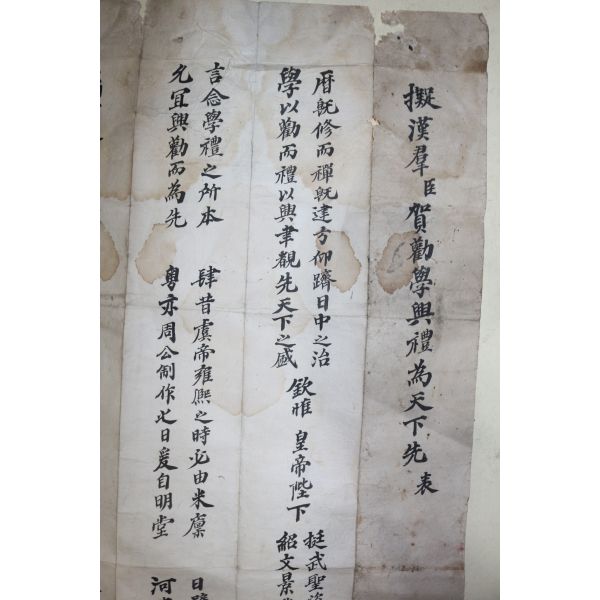 擬漢羣臣賀勸學興禮為天下先 表
曆旣修而禪旣建方仰躋日中之治
學以勸而禮以興聿覩先天下之盛
欽惟 皇帝陛下
挺武聖
紹文景
言念學禮之所本
允宜興勸而為先
肆昔虞帝雍熙之時必由米廩
粤亦周公制作之日爰自明堂
日
河